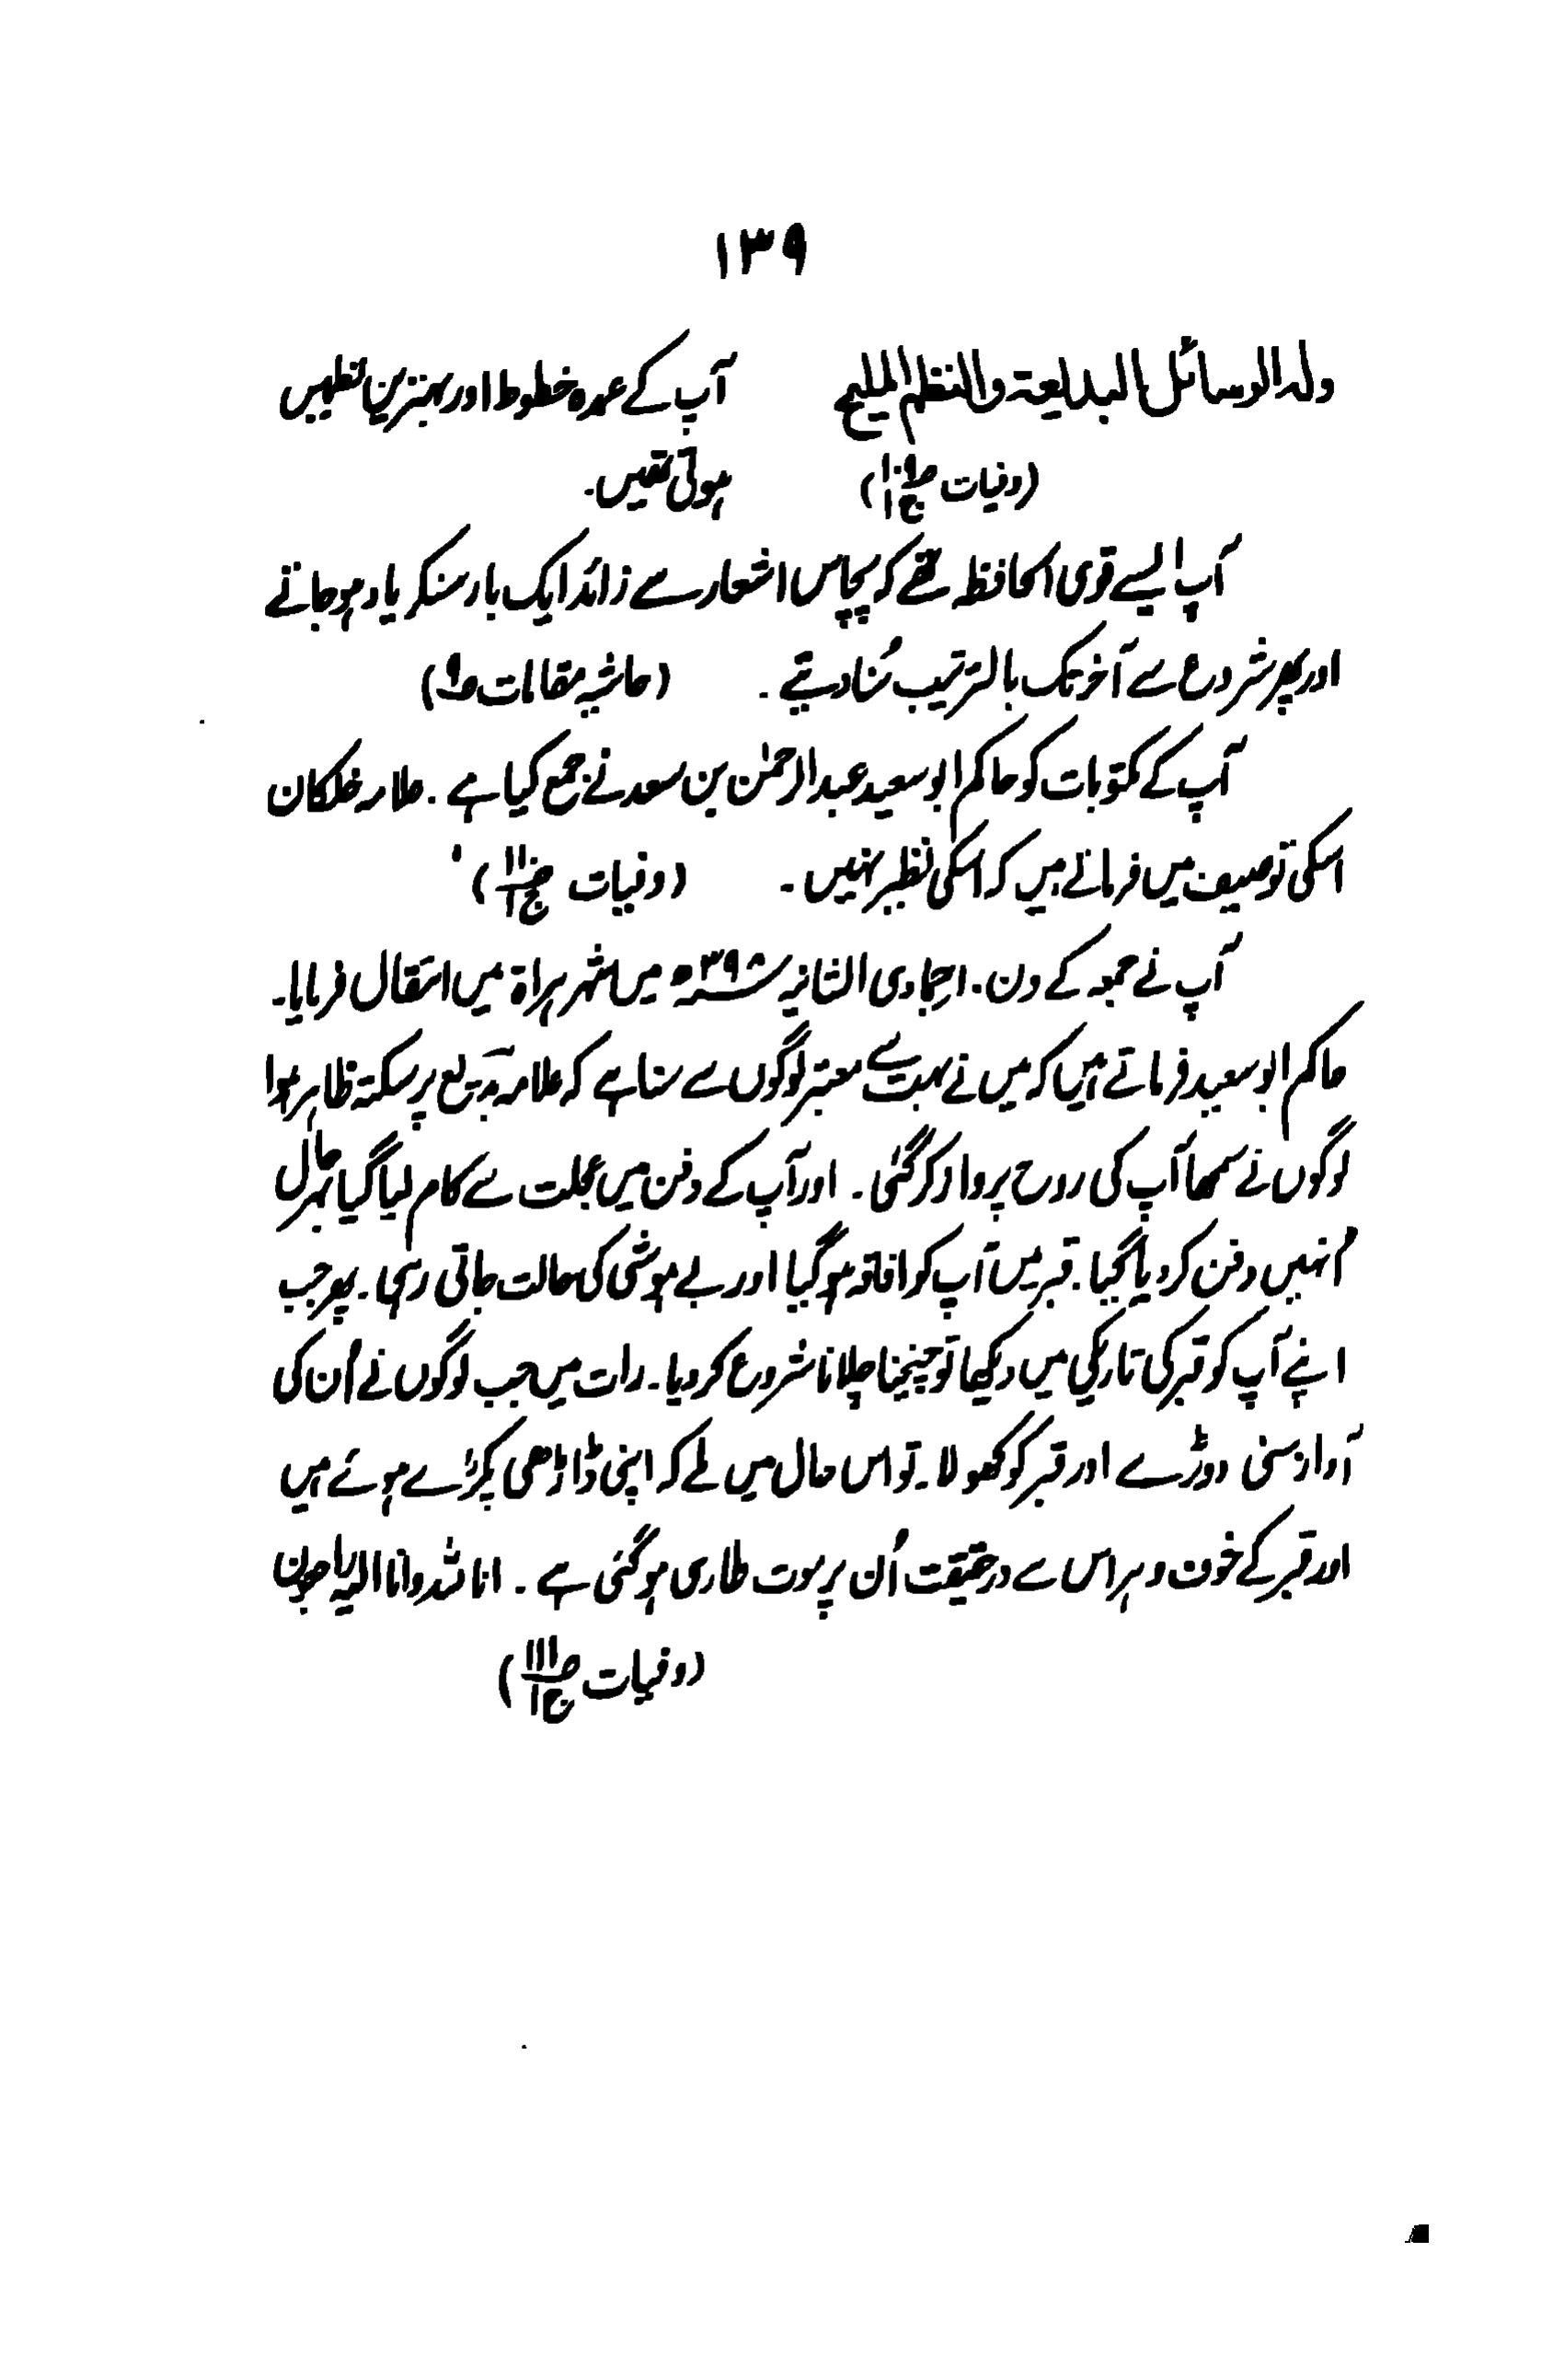 ۱۳۹
ولہ الوسائل البدایعۃ والنظم الملیح آپ کے عمدہ خطوط اور بہترین نظمیں
(وفیات ج۱) ہوتی تھیں۔
آپ ایسے قوی الحافظہ تھے کہ پچاس اشعار سے زائد ایک بار سنکر یاد ہو جاتے
اور پھر شروع سے آخر تک بالترتیب سُنا دیتے۔ (حاشیہ مقامات ص۹)
آپ کے مکتوبات کو حاکم ابو سعید عبدالرحمٰن بن سعد نے جمع کیا ہے۔ علامہ خلکان
اسکی توصیف میں فرماتے ہیں کہ اسکی نظیر نہیں۔ (وفیات ص۱۱۱ ج۱)
آپ نے جمعہ کے دن ۱۰ جمادی الثانیہ ۳۹۸ھ میں شہر ہراۃ میں انتقال فرمایا۔
حاکم ابو سعید فرماتے ہیں کہ میں نے بہت سے معتبر لوگوں سے سنا ہے کہ علامہ بدیع پر سکتہ ظاہر ہوا
لوگوں نے سمجھا آپ کی روح پرواز کر گئی۔ اور آپ کے دفن میں عجلت سے کام لیا گیا بہرحال
اُنہیں دفن کر دیا گیا۔ قبر میں آپ کو افاقہ ہو گیا اور بے ہوشی کی حالت جاتی رہی۔ پھر جب
اپنے آپ کو قبر کی تاریکی میں دیکھا تو چیخنا چلانا شروع کر دیا۔ رات میں جب لوگوں نے اُن کی
آواز سنی دوڑے اور قبر کو کھولا۔ تو اس حال میں ملے کہ اپنی ڈاڑھی پکڑے ہوئے ہیں
اور قبر کے خوف و ہراس سے درحقیقت اُن پر موت طاری ہو گئی ہے۔ انا للہ وانا الیہ راجعون
(وفیات ص۱۱۱ ج۱)